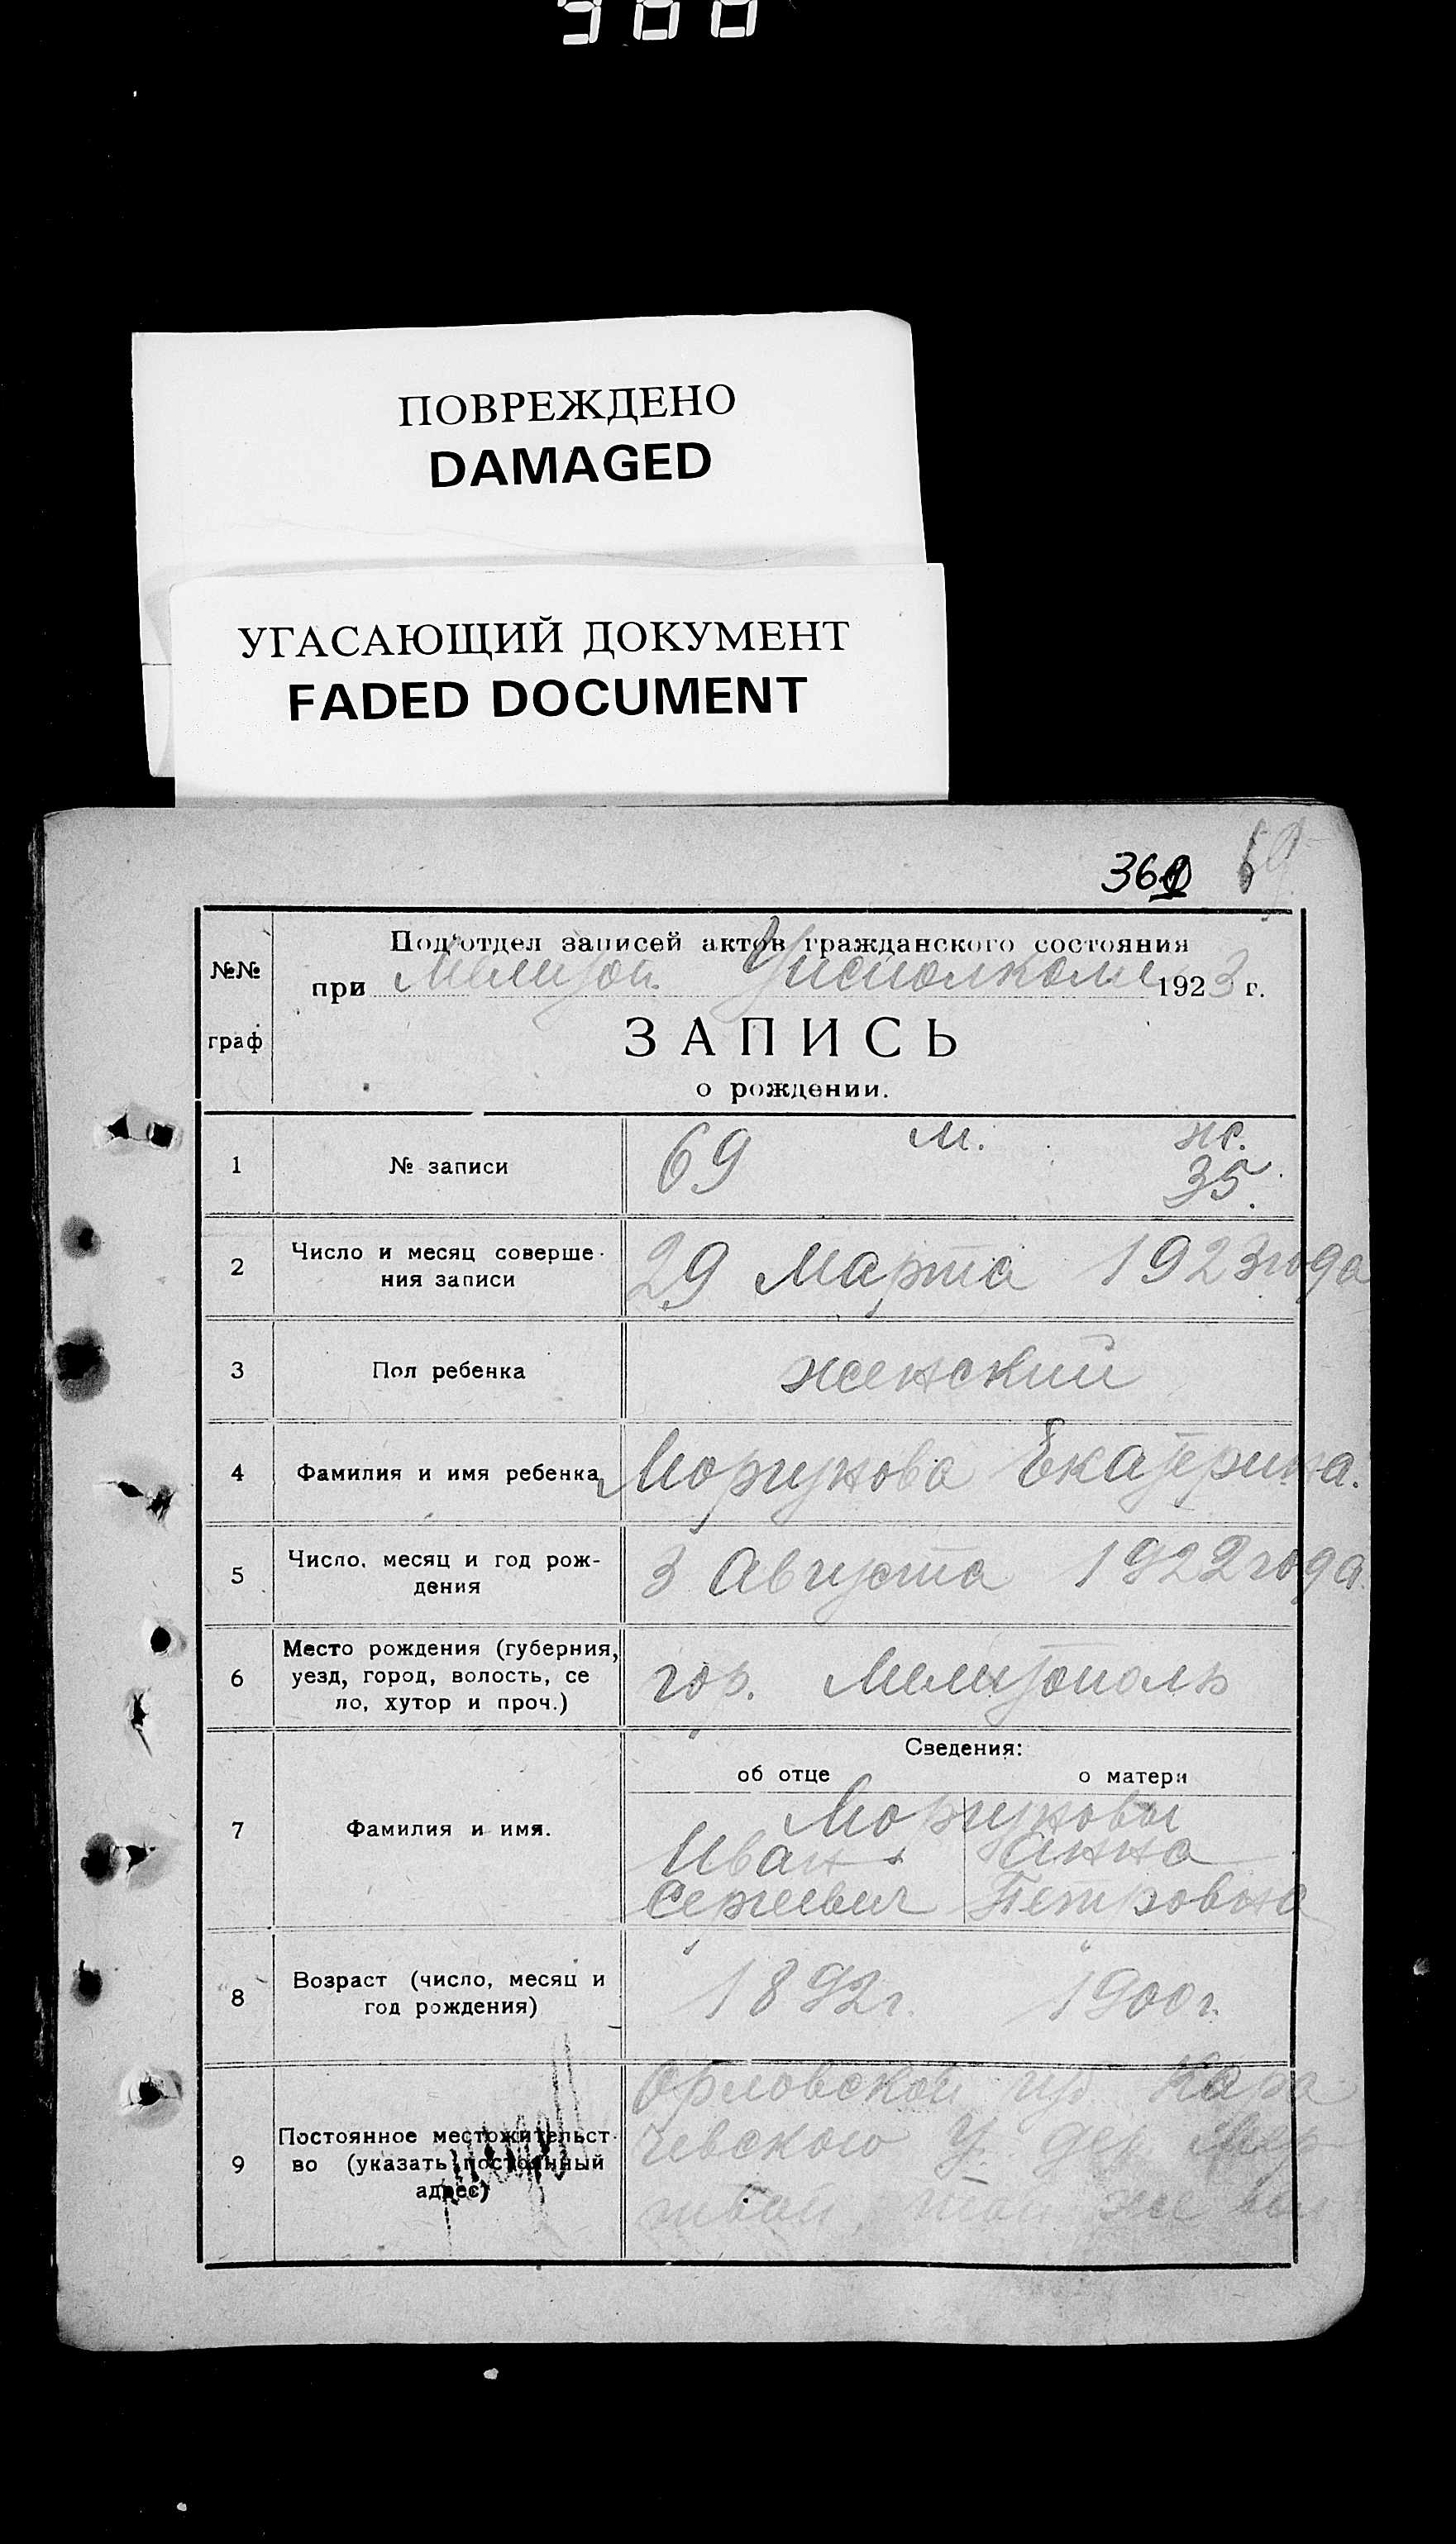 ПОВРЕЖДЕНО
DAMAGED
УГАСАЮЩИЙ ДОКУМЕНТ
FADED DOCUMENT
69
№№ граф
Под'отдел записей актов гражданского состояния
при Мелитоп. Уисполкоме 1923 г.
ЗАПИСЬ
о рождении.
1 № записи 69 м. ж.
35.
2 Число и месяц соверше-
ния записи
29 Марта 1923 года
3 Пол ребенка женский
4 Фамилия и имя ребенка Моргунова Екатерина.
5 Число, месяц и год рож-
дения
3 Августа 1922 года
6 Место рождения (губерния,
уезд, город, волость, се
ло, хутор и проч.)
гор. Мелитополь
Сведения:
об отце о матери
7 Фамилия и имя.
Моргуновы
Иван Анна
Сергеевич Петровна
8 Возраст (число, месяц и
год рождения)
1892 г. 1900 г.
9 Постоянное местожительст-
во (указать постоянный
адрес)
Орловской губ. Кара
чевского у. дер.
той же вол